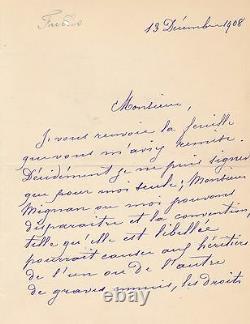 13 Décembre 1908
Monsieur,
Je vous renvoie la feuille
que vous m'avez remise.
Décidément je ne puis signer
que pour moi seule; Monsieur
Mignan ou moi pouvant
disparaître et la convention
telle qu'elle est libellée
pourrait causer aux héritiers
de l'un ou de l'autre
de graves ennuis, les droits